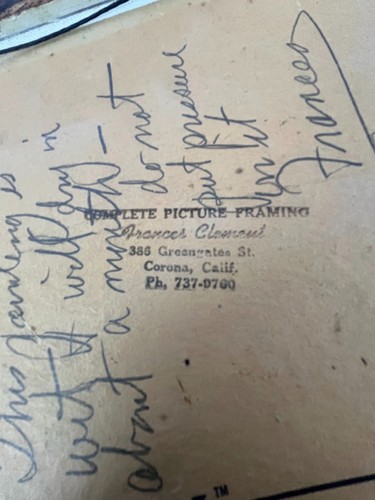 This painting is
wet It will dry in
about a month —
do not
put pressure
on it
Frances
COMPLETE PICTURE FRAMING
Frances Clement
386 Greengates St.
Corona, Calif.
Ph, 737-0760
TM